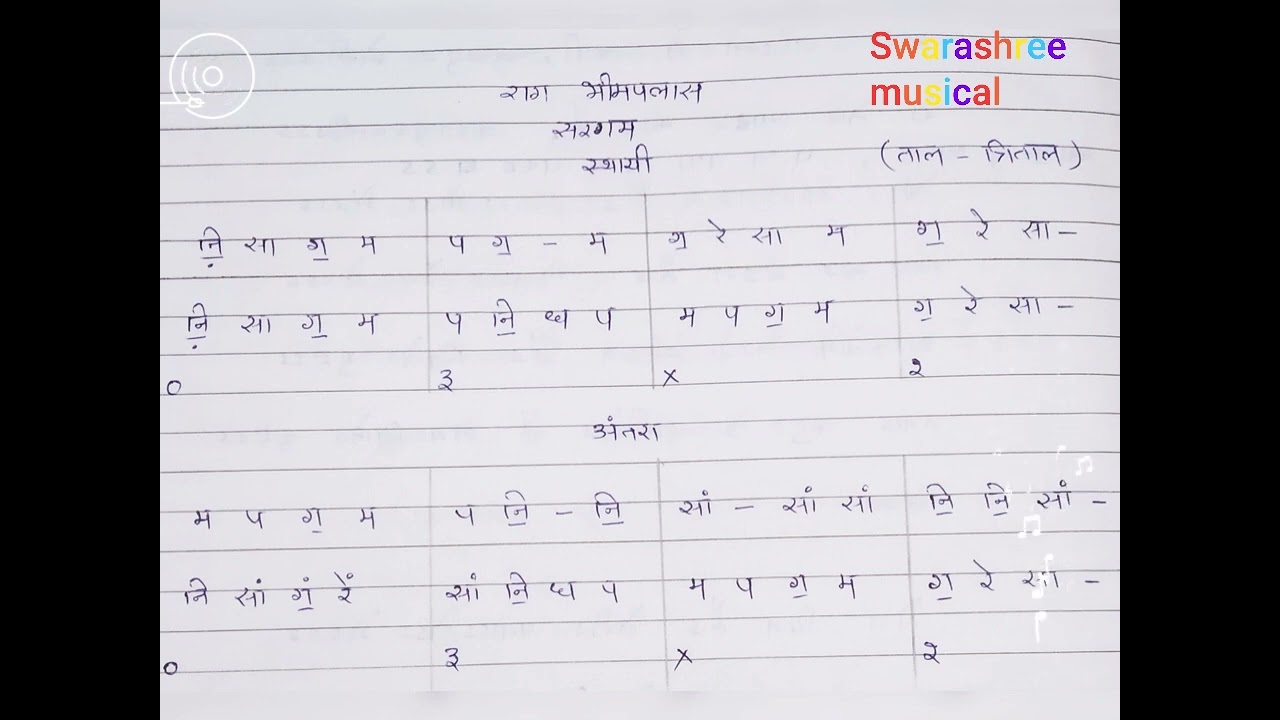 Swarashree
musical
राग भीमपलास
सरगम
स्थायी (ताल - त्रिताल)
ऩि॒ सा ग॒ म प ग॒ - म ग॒ रे सा म ग॒ रे सा -
ऩि॒ सा ग॒ म प नि॒ ध प म प ग॒ म ग॒ रे सा -
० ३ x २
अंतरा
म प ग॒ म प नि॒ - नि॒ सां - सां सां नि॒ नि॒ सां -
नि सां गं॒ रें सां नि॒ ध प म प ग॒ म ग॒ रे सा -
० ३ x २